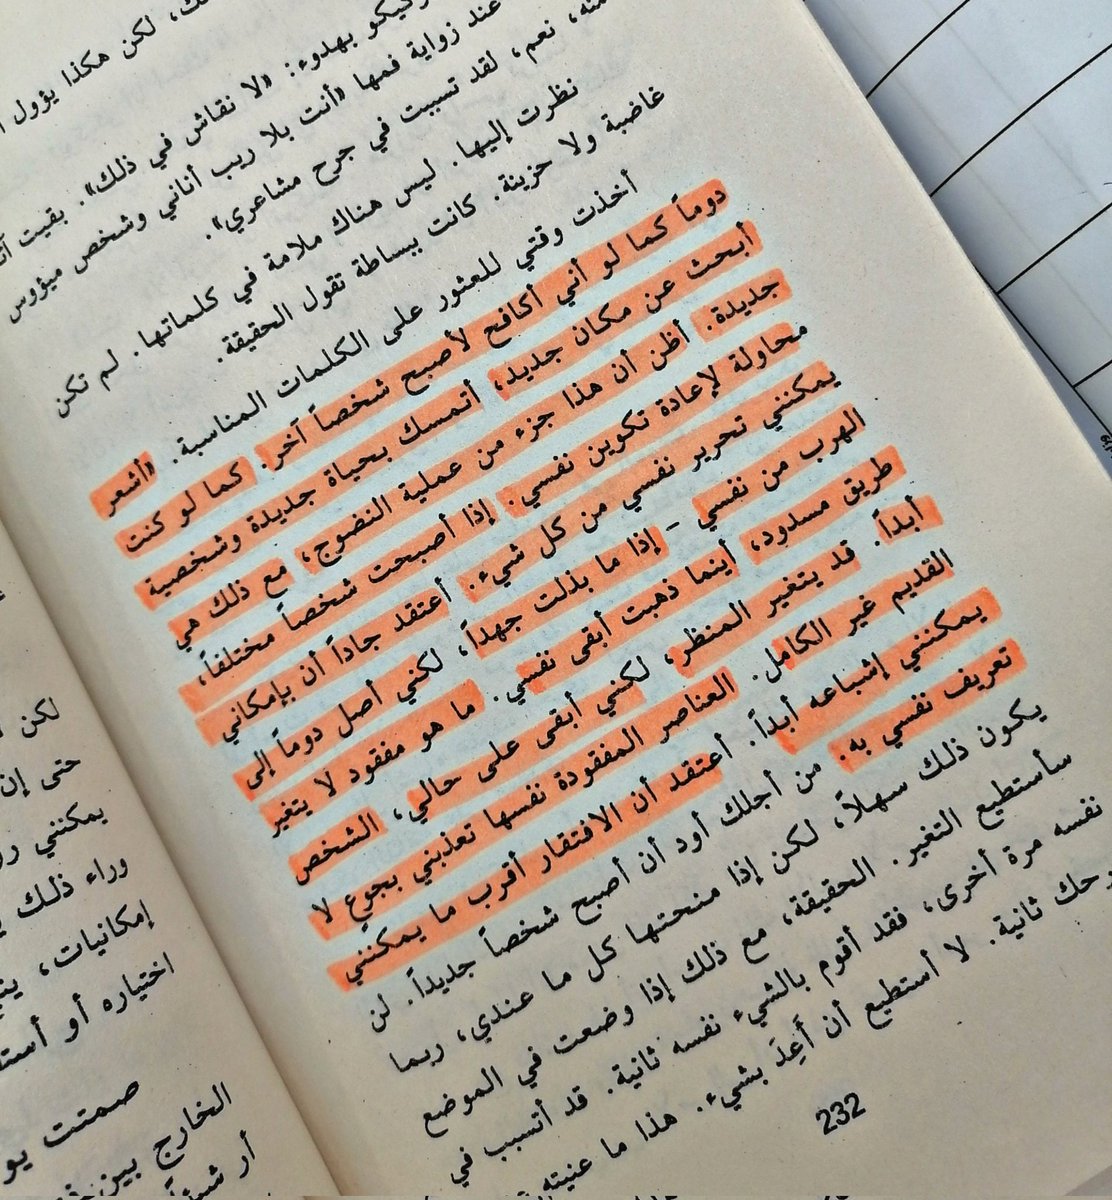 لكن هكذا يؤول
بهدوء: «لا نقاش في ذلك». بقيت
عند زواية فمها «أنت بلا ريب أناني وشخص ميؤوس
منه، نعم، لقد تسببت في جرح مشاعري».
نظرت إليها. ليس هناك ملامة في كلماتها. لم تكن
غاضبة ولا حزينة. كانت ببساطة تقول الحقيقة.
أخذت وقتي للعثور على الكلمات المناسبة. «أشعر
دوماً كما لو أني أكافح لأصبح شخصاً آخر. كما لو كنت
أبحث عن مكان جديد، أتمسك بحياة جديدة وشخصية
جديدة. أظن أن هذا جزء من عملية النضوج، مع ذلك هي
محاولة لإعادة تكوين نفسي. إذا أصبحت شخصاً مختلفاً،
يمكنني تحرير نفسي من كل شيء. أعتقد جاداً أن بإمكاني
الهرب من نفسي - إذا ما بذلت جهداً، لكني أصل دوماً إلى
طريق مسدود، أينما ذهبت أبقى نفسي. ما هو مفقود لا يتغير
أبداً. قد يتغير المنظر، لكنني أبقى على حالي، الشخص
القديم غير الكامل. العناصر المفقودة نفسها تعذبني بجوع لا
يمكنني إشباعه أبداً. أعتقد أن الافتقار أقرب ما يمكنني
تعريف نفسي به. من أجلك أود أن أصبح شخصاً جديداً. لن
يكون ذلك سهلاً، لكن إذا منحتها كل ما عندي، ربما
سأستطيع التغير. الحقيقة، مع ذلك إذا وضعت في الموضع
نفسه مرة أخرى، فقد أقوم بالشيء نفسه ثانية. قد أتسبب في
ثانية. لا أستطيع أن أَعِدَ بشيء. هذا ما عنيته
232
لكن
حتى إن
يمكنني
وراء ذلك
إمكانيات،
اختياره أو
صمتت
الخارج بين
أر